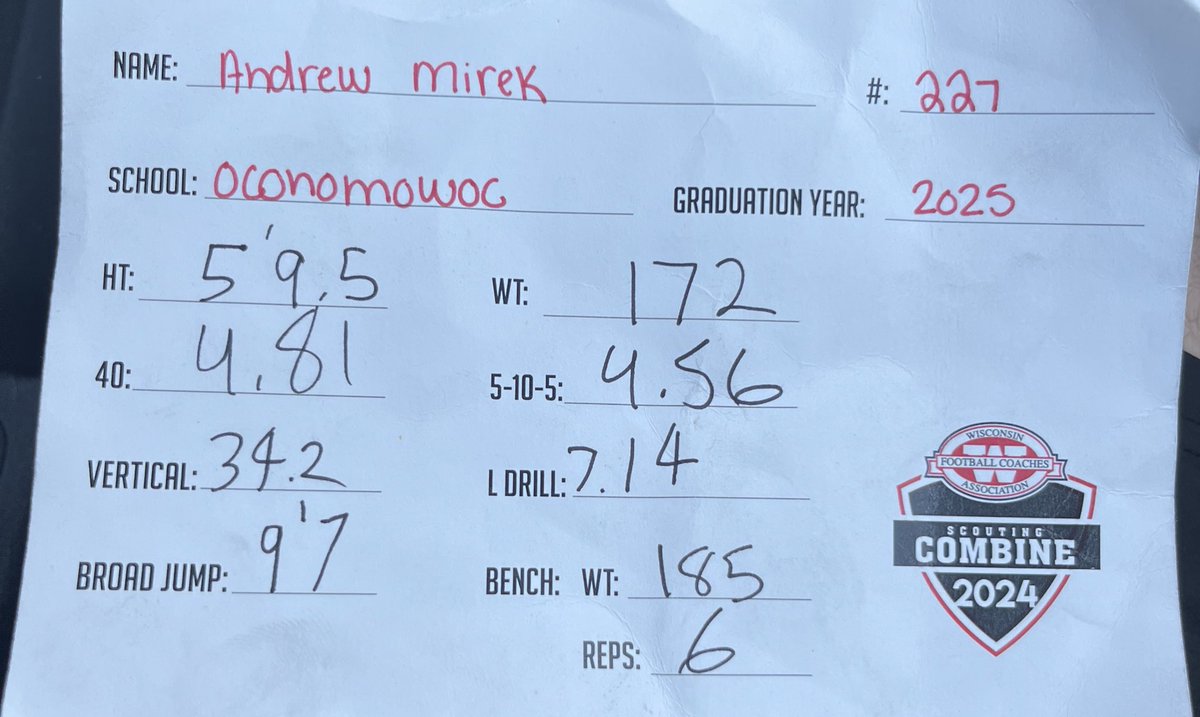 NAME: Andrew Mirek #: 227
SCHOOL: Oconomowoc GRADUATION YEAR: 2025
HT: 5'9.5 WT: 172
40: 4.81 5-10-5: 4.56
VERTICAL: 34.2 L DRILL: 7.14
BROAD JUMP: 9'7 BENCH: WT: 185
REPS: 6
WISCONSIN
FOOTBALL COACHES
ASSOCIATION
SCOUTING
COMBINE
2024